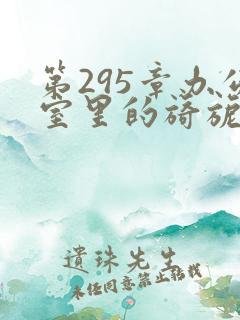 第295章办公
室里的旖旎
遺珠先生
未经同意禁止转载